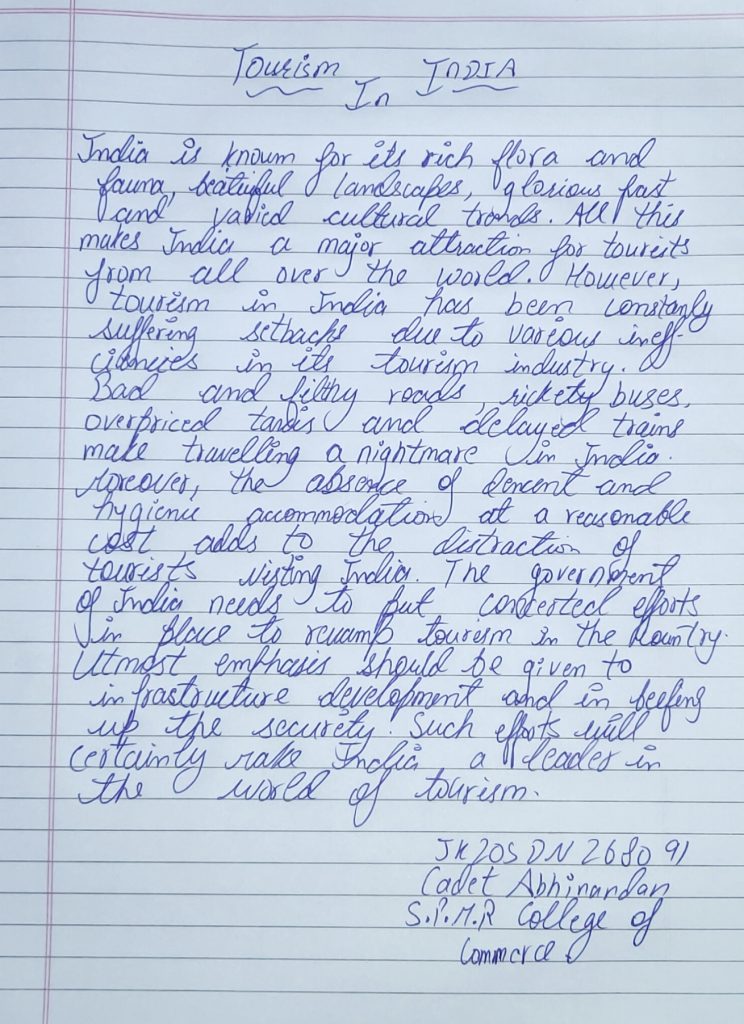 Tourism
In
INDIA
India is known for its rich flora and
fauna, beatuiful landscapes, glorious past
and varied cultural trends. All this
makes India a major attraction for toureits
from all over the world. However,
tourism in India has been constanly
suffering setbacks due to various ineff-
ciencies in its tourism industry.
Bad and filthy roads, rickety buses,
overpriced taxis and delayed trains
make travelling a nightmare in India.
Moreover, the absence of dencent and
hygienic accommodation at a reasonable
cost adds to the distraction of
tourists visting India. The government
of India needs to put concerted efforts
in place to revamp tourism in the kountry.
Utmost emphasis should be given to
infrastructure development and in beefing
up the security. Such efforts will
certainly make India a leader in
the world of tourism.
JK20SDN268091
Cadet Abhinandan
S.P.M.R College of
Commerce